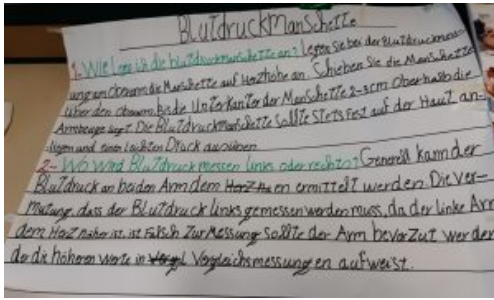 Blutdruckmanschette
1. Wie lege ich die blutdruckmanschette an? Legen Sie bei der Blutdruckmess
ung am oberarm die Manschette auf Herzhöhe an. Schieben Sie die Manschette
über den oberarm, bis die Unterkante der Manschette 2-3cm oberhalb die
Armbeuge liegt. Die Blutdruckmanschette sollte stets fest auf der Haut an-
liegen und einen leichten Druck ausüben
2- Wo wird Blutdruck messen links oder rechts? Generell kann der
Blutdruck an beiden Arm dem en ermittelt werden. Die Ver-
mutung, dass der Blutdruck links gemessen werden muss, da der linke Arm
dem Herz näher ist, ist Falsch Zur Messung sollte der Arm bevorzut werden
der die höheren Werte in Vergleichsmessungen aufweist.